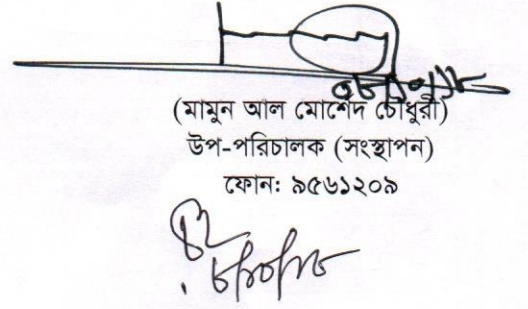 (মামুন আল মোর্শেদ চৌধুরী)
উপ-পরিচালক (সংস্থাপন)
ফোন: ৯৫৬১২০৯